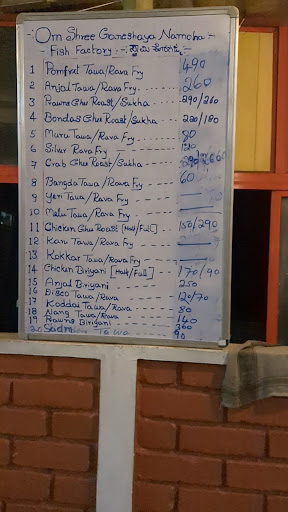 Om Shree Ganeshaya Namaha :-
- Fish Factory :-
1 Pomfret Tawa/Rava Fry 490
2 Anjal Tawa/Rava Fry 260
3 Prawns Ghee Roast/Sukha 290/260
4 Bondas Ghee Roast/Sukha 220/180
5 Muru Tawa/Rava Fry 80
6 Silver Rava Fry
7 Crab Ghee Roast/Sukha
8 Bangda Tawa/Rava Fry 60
9 Yeri Tawa/Rava Fry
10 Malu Tawa/Rava Fry
11 Chicken Ghee Roast [Half/Full] 150/290
12 Kane Tawa/Rava Fry
13 Kokkar Tawa/Rava Fry
14 Chicken Biriyani [Half/Full] 170/90
15 Anjal Biriyani 250
16 Disco Tawa/Rava 120/70
17 Koddai Tawa/Rava 80
18 Nang Tawa/Rava 140
19 Prawns Biriyani 200
90